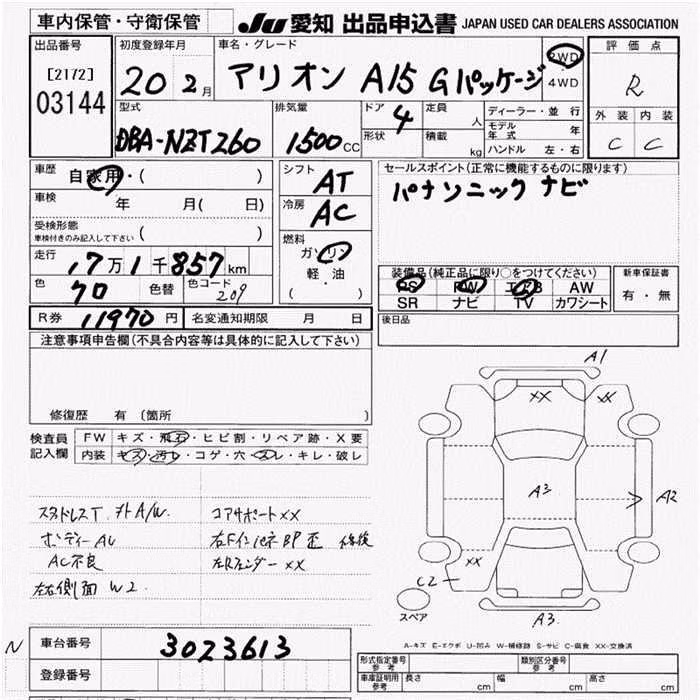 車内保管・守衛保管
JU 愛知 出品申込書 JAPAN USED CAR DEALERS ASSOCIATION
出品番号
[2172]
03144
初度登録年月
20 2月
車名・グレード
アリオン A15 Gパッケージ
2WD
4WD
評価点
R
外装 内装
C C
型式
DBA-NZT260
排気量
1500 CC
ドア
4
形状
定員 人
積載 kg
ディーラー・並行
モデル年式 年
ハンドル 左・右
車歴 自家用・( )
車検 年 月( 日)
受検形態
車検付きのみ記入して下さい ( )
走行 17万1千857km
色 クロ 色替 色コード 209
シフト AT
冷房 AC
燃料
ガソリン
軽油
( )
セールスポイント(正常に機能するものに限ります)
パナソニック ナビ
装備品(純正品に限り○をつけてください)
PS PW エアB AW
SR ナビ TV カワシート
新車保証書
有・無
R券 11970円 名変通知期限 月 日
後日品
注意事項申告欄(不具合内容等は具体的に記入して下さい)
修復歴 有 〔箇所 〕
検査員記入欄
FW キズ・飛石・ヒビ割・リペア跡・X要
内装 キズ・汚レ・コゲ・穴・スレ・キレ・破レ
スタッドレスT 社外A/W. コアサポートXX
ボンディーAU 右Fインパネ BP歪 修復
AC不良 左Rフェンダー XX
左右側面 W2.
A1
XX XX
A3
A2
XX
C2
A3
スペア
A-キズ E-エクボ U-凹み W-補修跡 S-サビ C-腐食 XX-交換済
N 車台番号 3023613
登録番号
形式指定番号 参考
類別区分番号 参考
車庫証明用 参考 長さ cm 幅 cm 高さ cm